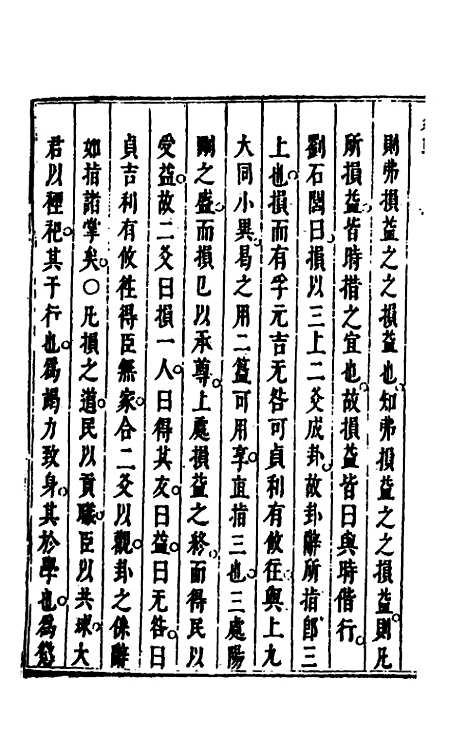 則弗損益之之損益也知弗損益之之損益則凡
所損益皆時措之宜也故損益皆曰與時偕行
劉石閭曰損以三上二爻成卦故卦辭所指卽三
上也損而有孚元吉无咎可貞利有攸往與上九
大同小異曷之用二簋可用享直指三也三處陽
剛之盛而損已以承尊上處損益之終而得民以
受益故二爻曰損一人曰得其友曰益曰无咎曰
貞吉利有攸徃得臣無家合二爻以觀卦之彖辭
如指諸掌矣〇凡損之道民以貢職臣以共球大
君以禋祀其于行也爲竭力致身其於學也爲懲